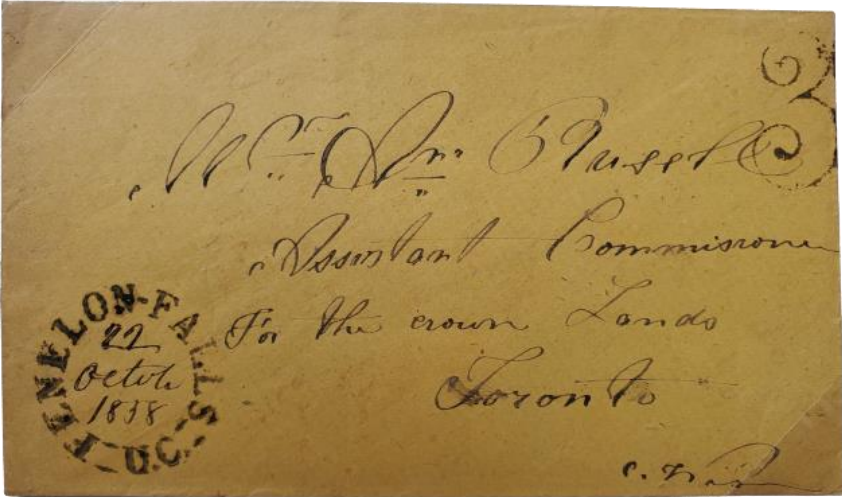 Mr. An. Russell
Assistant Commissioner
For the crown Lands
Toronto
FENELON-FALLS
22
1858
3